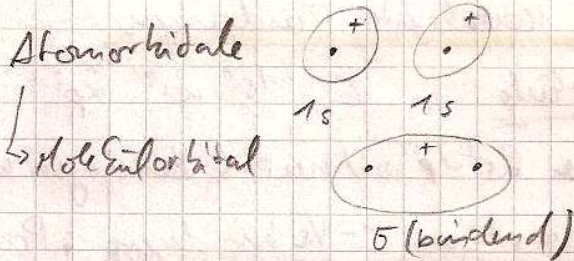 Atomorbitale + +
1s 1s
↳ Molekülorbital +
σ (bindend)